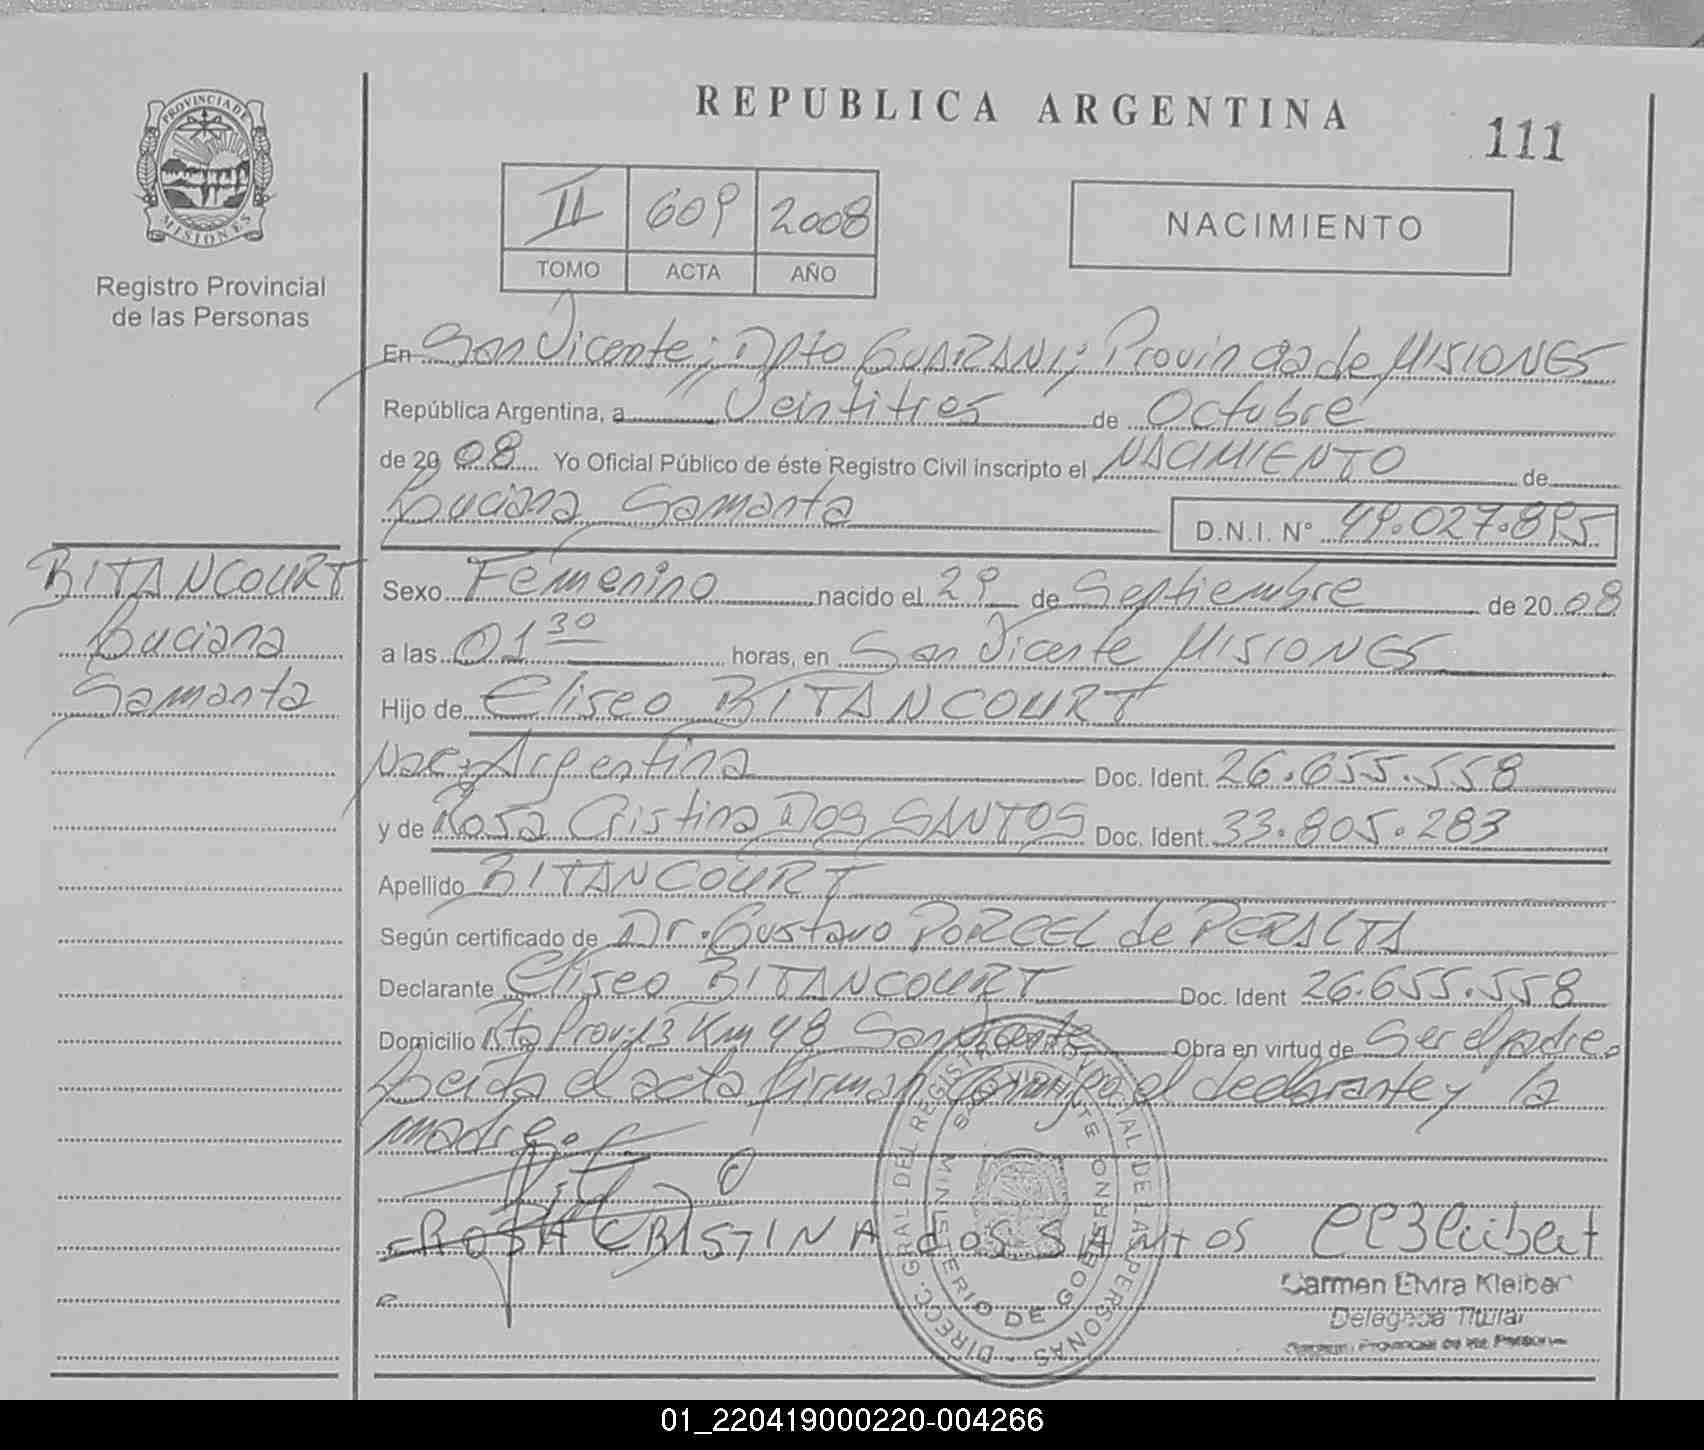 REPUBLICA ARGENTINA
111
PROVINCIA DE
MISIONES
Registro Provincial
de las Personas
II 609 2008
TOMO ACTA AÑO
NACIMIENTO
En San Vicente; Dpto GUARANI; Provincia de MISIONES
República Argentina, a Veintitres de Octubre
de 2008 Yo Oficial Público de éste Registro Civil inscripto el NACIMIENTO de
Luciana Samanta D.N.I. N° 49.027.895
BITANCOURT
Luciana
Samanta
Sexo Femenino nacido el 29 de Septiembre de 2008
a las 01 30 horas, en San Vicente MISIONES
Hijo de Eliseo BITANCOURT
Nac. Argentina Doc. Ident. 26.655.558
y de Rosa Cristina DOS SANTOS Doc. Ident. 33.805.283
Apellido BITANCOURT
Según certificado de Dr. Gustavo PORCEL de PERALTA
Declarante Eliseo BITANCOURT Doc. Ident 26.655.558
Domicilio Rta Prov. 13 Km 48 San Vicente Obra en virtud de Ser el padre.
Leida el acta firman conmigo el declarante y la
madre.
ROSA CRISTINA dos SANTOS
Carmen Elvira Kleiber
Delegada Titular
Registro Provincial de las Personas
DIRECC. GRAL. DEL REGISTRO PROVINCIAL DE LAS PERSONAS
MINISTERIO DE GOBIERNO
SAN VICENTE
01_220419000220-004266